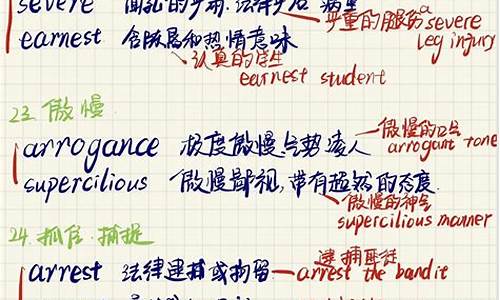 severe
严重的腿伤 a severe
leg injury
earnest 含除恶和热情意味
认真的学生
earnest student
23. 傲慢
arrogance 极度傲慢气势凌人 傲慢的口气
arrogant tone
supercilious 傲慢鄙视,带有超然的态度.
傲慢的神气
supercilious manner
24. 抓住.捕捉
逮捕匪徒
arrest 法律逮捕或拘留 arrest the bandit